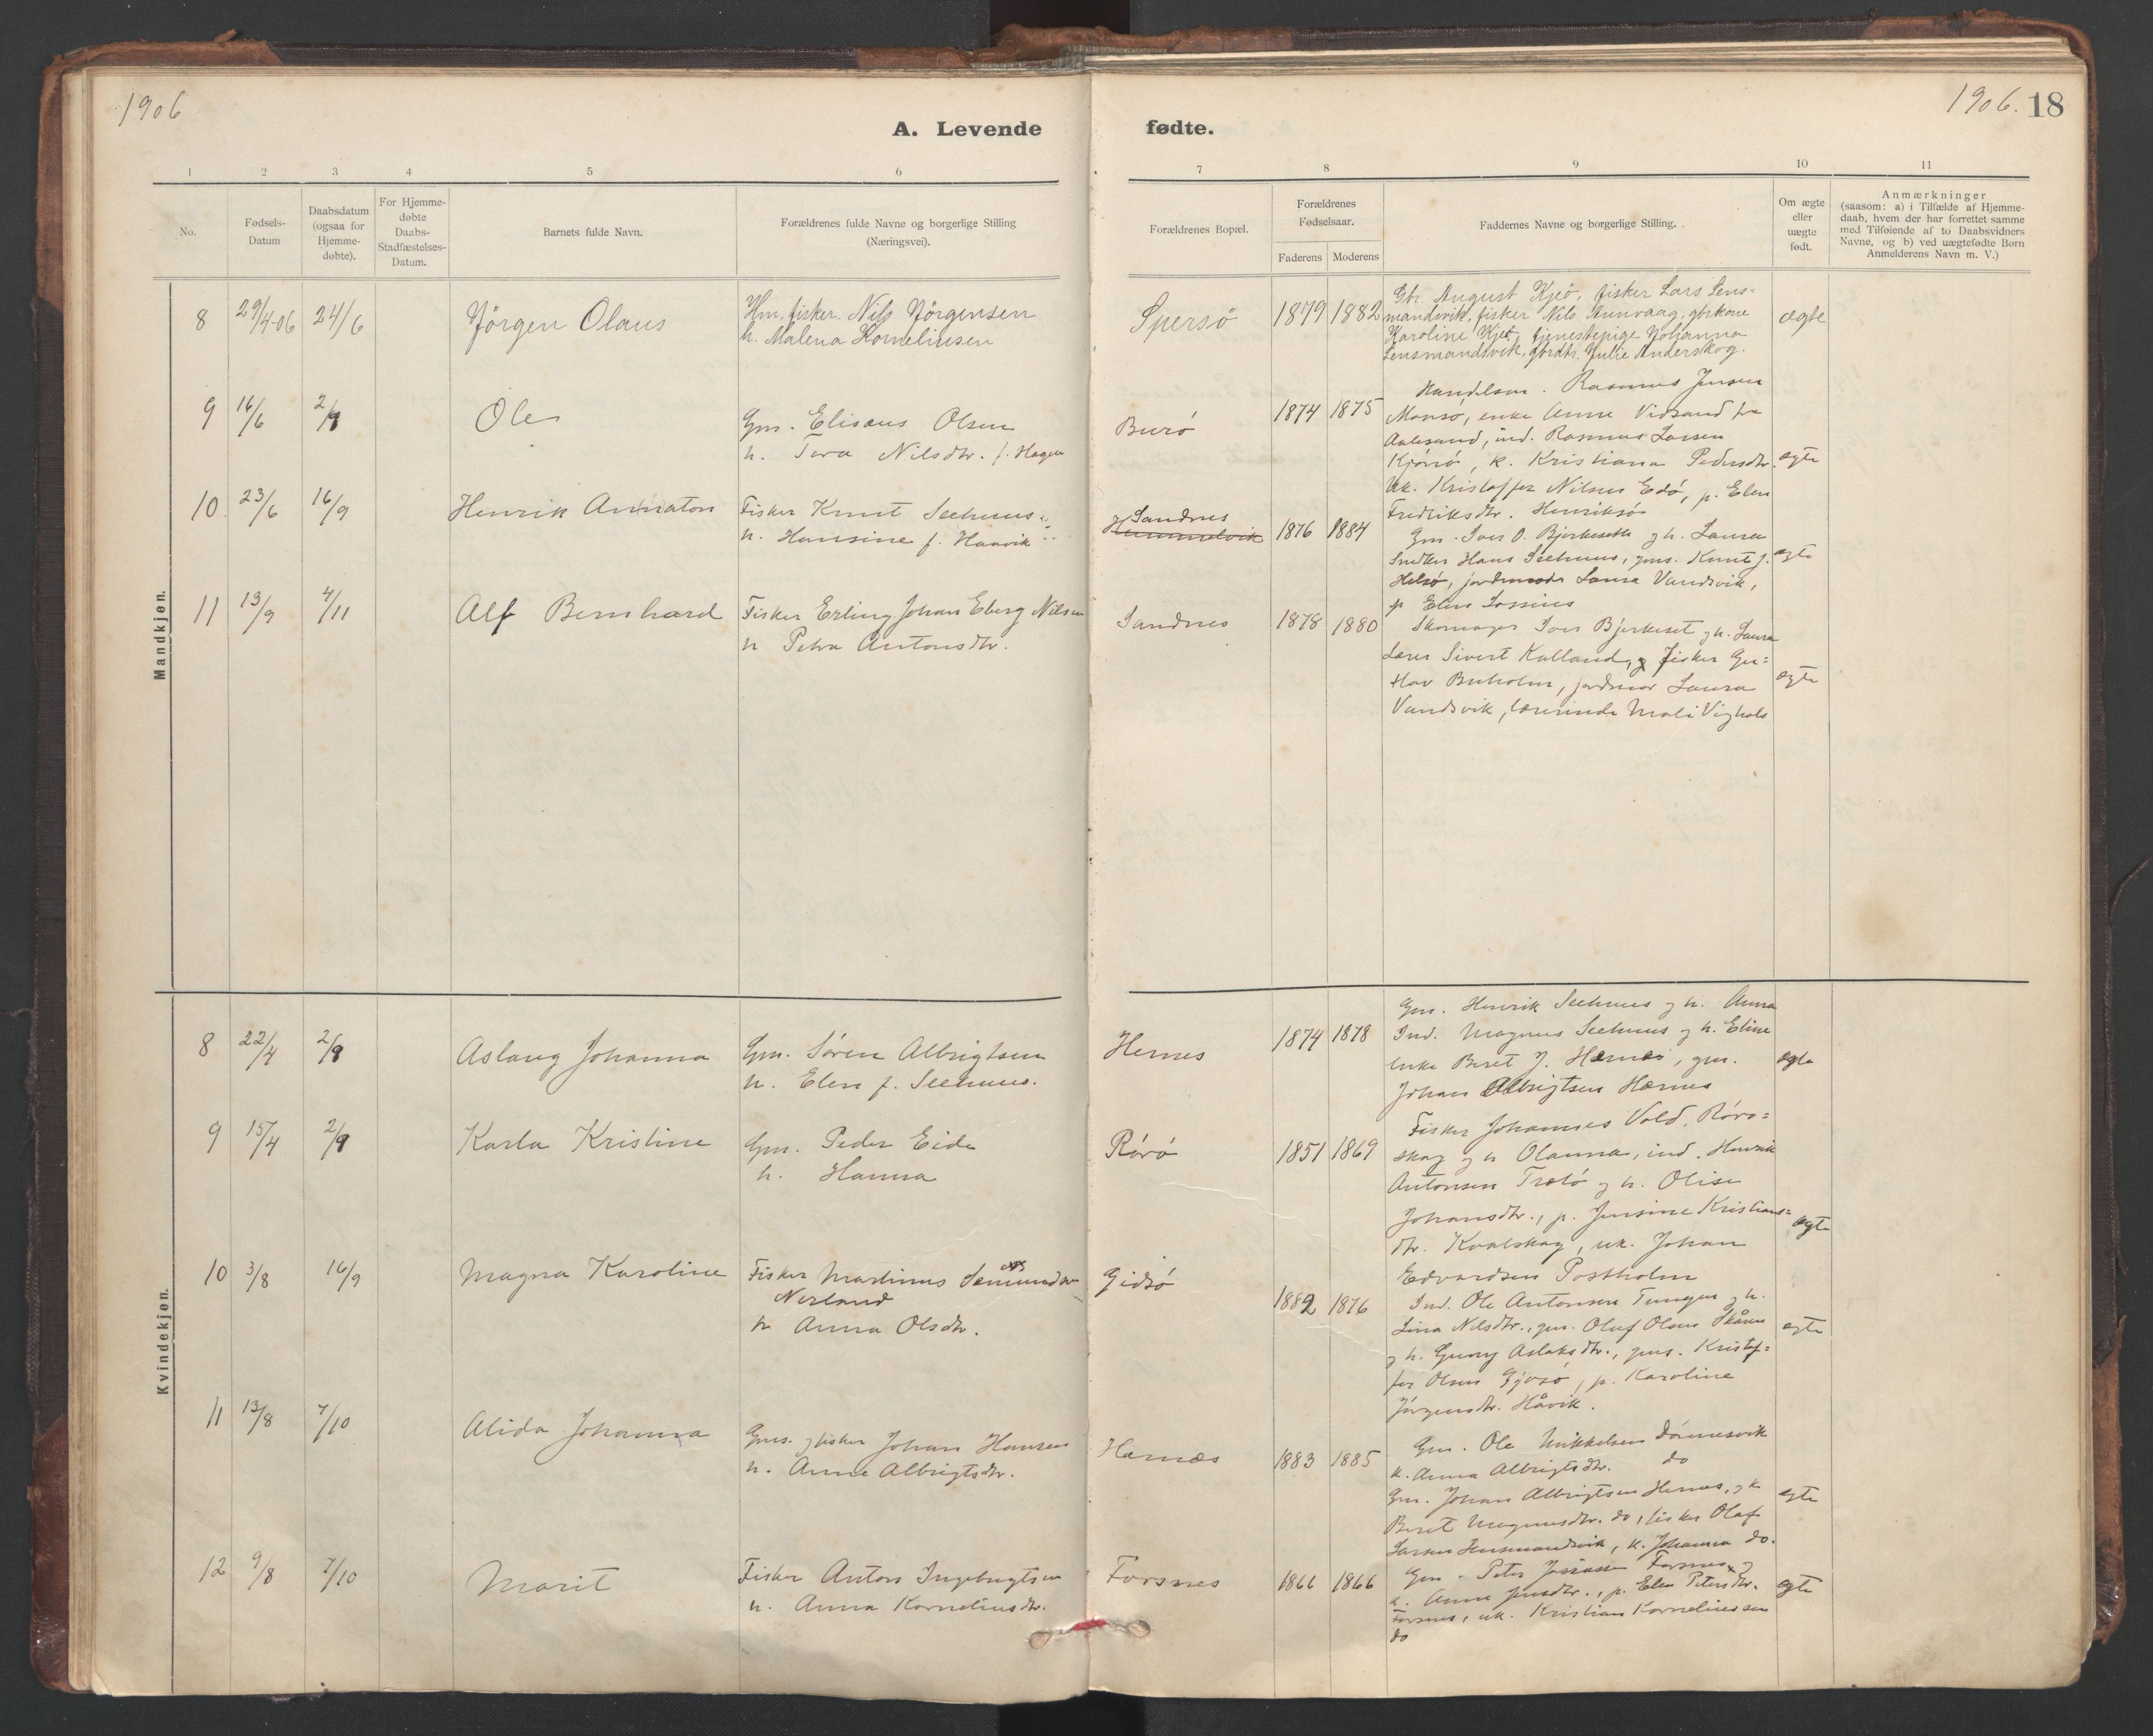 1906
1906. 18
A. Levende fødte.
1 2 3 4 5 6 7 8 9 10 11
No.
Fødsels-
Datum
Daabsdatum
(ogsaa for
Hjemme-
døbte).
For Hjemme-
døbte
Daabs-
Stadfæstelses-
Datum.
Barnets fulde Navn.
Forældrenes fulde Navne og borgerlige Stilling
(Næringsvei).
Forældrenes Bopæl.
Forældrenes
Fødselsaar.
Faderens Moderens
Faddernes Navne og borgerlige Stilling.
Om ægte
eller
uægte
født.
Anmærkninger
(saasom: a) i Tilfælde af Hjemme-
daab, hvem der har forrettet samme
med Tilføiende af to Daabsvidners
Navne, og b) ved uægtefødte Børn
Anmelderens Navn m. V.)
Mandkjøn.
8 29/4-06 24/6 Jörgen Olaus
Hm, fisker. Nils Jörgensen
h. Malena Korneliusen
Spersö 1879 1882
Gbr. August Kjeö, fisker Lars Lens=
mandsvik, fisker Nils Stunvaag, gbrkone
Karoline Kjeö, tjenestepige Johanna
Lensmandsvik, gbrdtr. Julie Anderskog.
ægte
9 16/6 2/9 Ole
Gm. Elisæus Olsen
h. Tora Nilsdtr. f. Hagen
Burö 1874 1875
Handelsm. Rasmus Jensen
Monsö, enke Anne Vidsand fra
Aalesund, ind. Rasmus Larsen
Kjönsö, k. Kristiana Pedersdtr.
Uk. Kristoffer Nilsen Edö, p. Elen
Fredriksdtr. Henriksö
ægte
10. 23/6 16/9 Henrik Annaton
Fisker Knut Seehuus
h. Hansine f. Haavik
Sandnes
1876 1884
Gm. Iver O. Bjerkeseth og h. Laura
Snedker Hans Seehuus, gms. Knut J.
Helsö, jordmoder Laura Vandsvik,
p Elen Lossius
ægte
11 13/9 4/11 Alf Bernhard
Fisker Erling Johan Eberg Nilsen
h Petra Antonsdtr.
Sandnes 1878 1880
Skomager Iver Bjerkeset og h. Laura
Lærer Sivert Kalland, og fisker Gu=
stav Buholm, jordmor Laura
Vandsvik, lærerinde Mali Vighals
ægte
Kvindekjøn.
8 22/4 2/9 Aslaug Johanna
Gm. Sören Albrigtsen
h. Elen f. Seehuus.
Hernes 1874 1878
Gm. Henrik Seehuus og h. Anna
Ind. Magnus Seehuus og h. Eline
enke Beret J. Hernes, gm.
Johan Albrigtsen Hernes
ægte
9 15/4 2/9 Karla Kristine
Gm. Peder Eide
h. Hanna
Rörö 1851 1869
Fisker Johannes Vold, Röro=
skag og h Olanna, ind. Henrik
Antonsen Trælö og h. Olise
Johansdtr., p. Jensine Kristians=
dtr. Kvalskag, uk. Johan
Edvardsen Postholm
ægte
10 3/8 16/9 Magna Karoline
Fisker Martinus Semundsen
Nerland
h Anna Olsdtr.
Gidsö 1882 1876
Ind. Ole Antonsen Tungen og h.
Lina Nilsdtr., gm. Oluf Olsen Skånn
og h. Guruy Aslaksdtr., gms. Kristof=
fer Olsen Gjösö, p. Karoline
Jörgensdtr. Håvik.
ægte
11 13/8 7/10 Alida Johanna
Gms. og fisker Johan Hansen
h. Anne Albrigtsdtr.
Hernæs 1883 1885
Gm. Ole Mikkelsen Dönnesvik
k. Anna Albrigtsdtr. do
Gm. Johan Albrigtsen Hernes, og k
Beret Magnusdtr. do, fisker Olaf
Larsen Lensmandsvik, k. Johanna do.
ægte
12 9/8 7/10 Marit
Fisker Anton Ingebrigtsen
h. Anna Korneliusdtr.
Forsnes 1866 1866
Gm. Peter Jonassen Forsnes og
k. Anne Jensdtr., p. Elen Petersdtr.
Forsnes, uk. Kristian Korneliussen
do
ægte